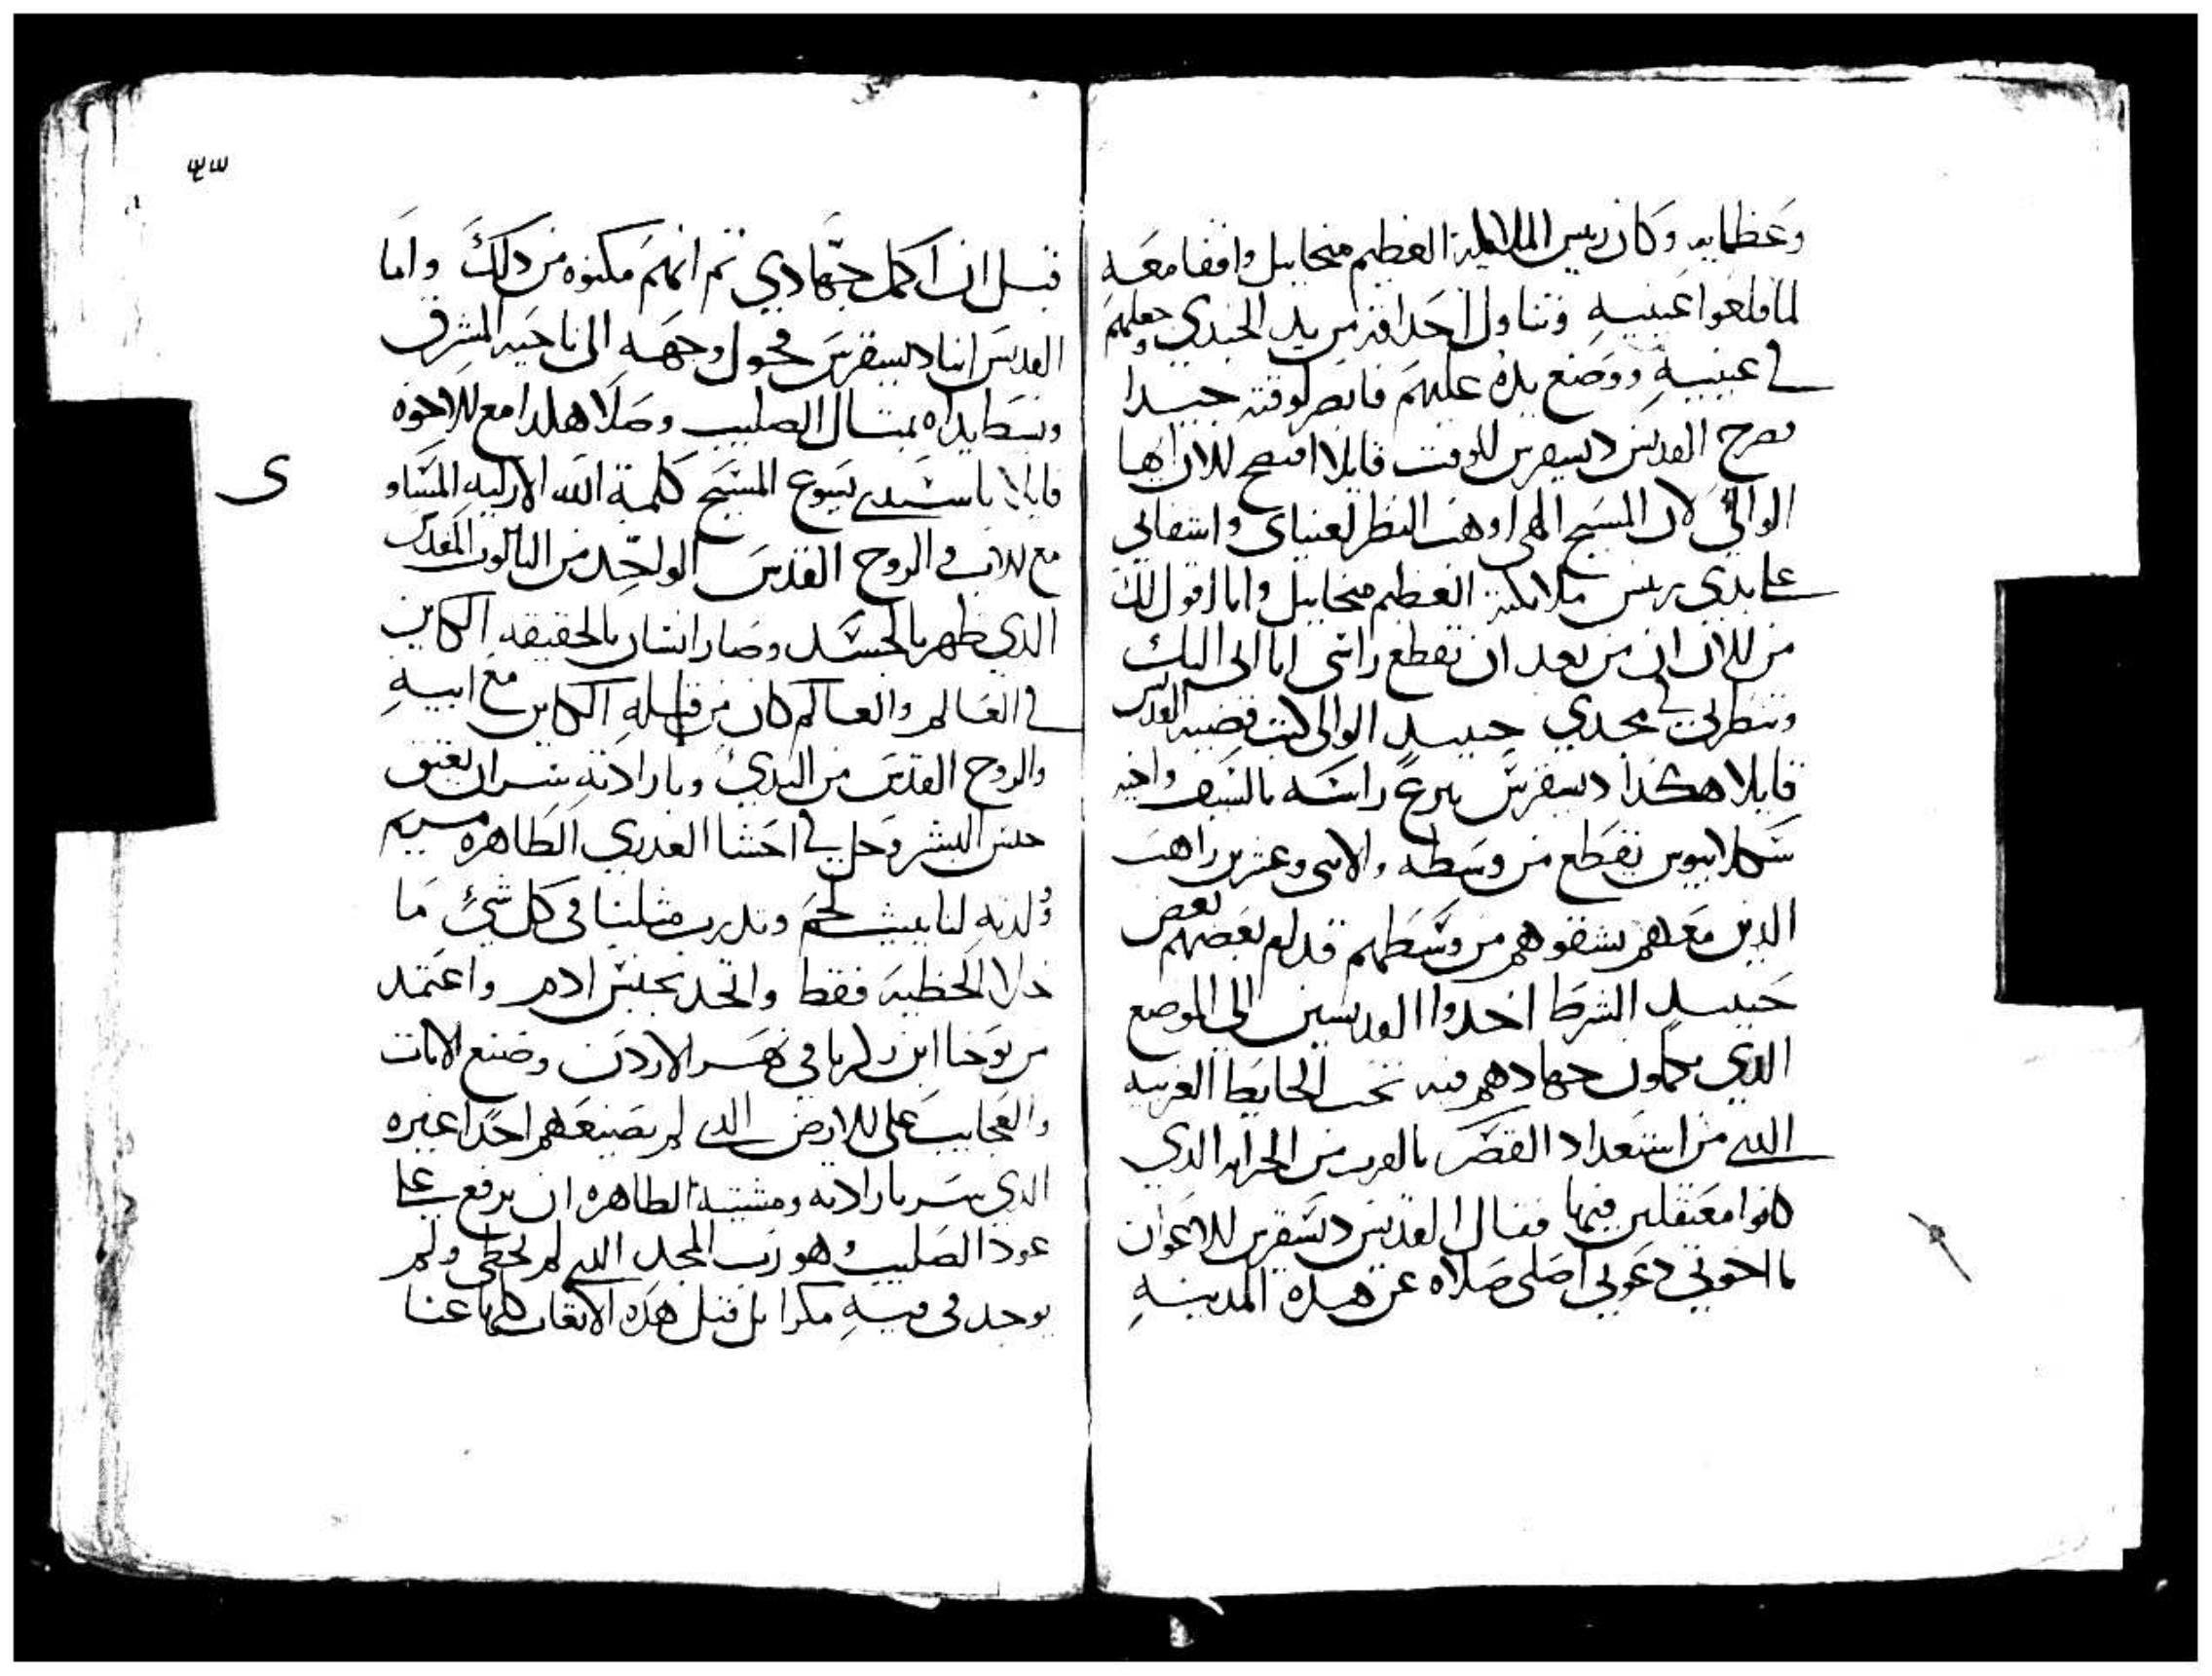 وعظمايه وكان رييس الملايكة العظيم ميخاييل واقفا معه
لما قلعوا عينيه وتناول احداقه من يد الجندي وجعلهم
في عينيه ووضع يده عليهم فابصر لوقته جيدا
فصرخ القديس ديسقرس للوقت قايلا افتضح الان ايها
الوالي لان المسيح الهي اوهب النظر لعيناي واشفاني
علي يدي رييس ملايكته العظيم ميخاييل وانا اقول لك
من الان ان من بعد ان تقطع راسي انا اتي اليك
وتنظرني في مجدي حينيذ الوالي كتب قضية القديس
قايلا هكذا ديسقرس ينزع راسه بالسيف واخيه
سكلابيوس يقطع من وسطه والاتنى وعشرين راهب
الدين معهم يشقوهم من وسطهم قدام بعضهم بعض
حينيذ الشرط اخدوا القديسين الي الموضع
الدي يكملون جهادهم فيه تحت الحايط الغربيه
التي من استعداد القصر بالقرب من الخزانه الدي
كانوا معتقلين فيها فقال القديس ديسقرس للاعوان
يا اخوتي دعوني اصلي صلاه عن هده المدينه
٤٣
قبل ان اكمل جهادي تم انهم مكنوه من دلك واما
القديس انبا ديسقرس فحول وجهه الي ناحية المشرق
وبسط يداه بمتال الصليب وصلا هكدا مع الاخوه
قايلا يا سيدي يسوع المسيح كلمة الله الازليه المساو
مع الاب والروح القدس الواحد من التالوت المقدس
الدي ظهر بالجسد وصار انسان بالحقيقه الكاين
في العالم والعالم كان من قبله الكاين مع ابيه
والروح القدس من البدي وبارادته سر ان يعتق
جنس البشر وحل في احشا العدري الطاهره مريم
ولدته لنا ببيت لحم وتدرب مثلنا في كل شي ما
خلا الخطيه فقط واتحد بجنس ادم واعتمد
من يوحنا ابن زكريا في نهر الاردن وصنع الايات
والعجايب علي الارض التي لم يصنعهم احدا غيره
الدي سر بارادته ومشيته الطاهره ان يرفع علي
عود الصليب وهو رب المجد الدي لم يخطي ولم
يوجد في فيه مكرا بل قبل هده الاتعاب كلها عنا
ى